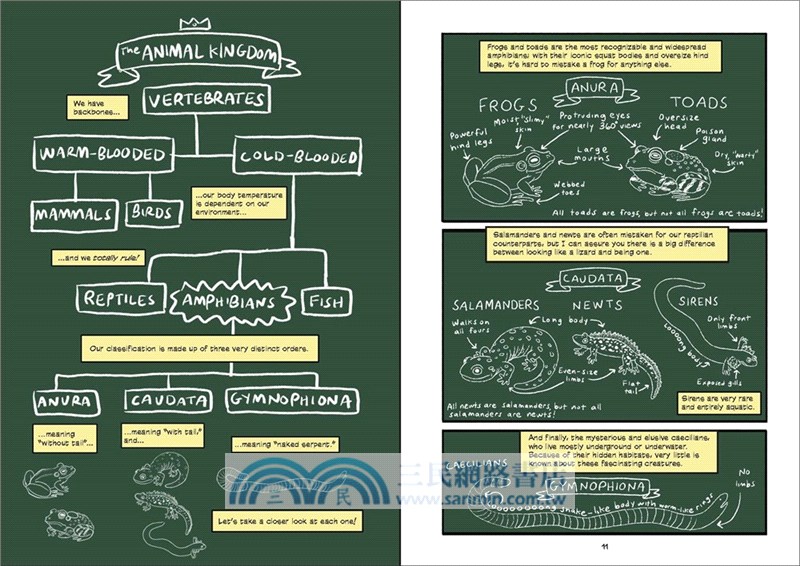 The ANIMAL KINGDOM
We have
backbones...
VERTEBRATES
WARM-BLOODED
COLD-BLOODED
MAMMALS
BIRDS
...our body temperature
is dependent on our
environment...
...and we totally rule!
REPTILES
AMPHIBIANS
FISH
Our classification is made up of three very distinct orders.
ANURA
CAUDATA
GYMNOPHIONA
...meaning
"without tail"...
...meaning
"with tail,"
and...
...meaning "naked serpent."
Let's take a closer look at each one!
Frogs and toads are the most recognizable and widespread
amphibians; with their iconic squat bodies and oversize hind
legs, it's hard to mistake a frog for anything else.
ANURA
FROGS
TOADS
Powerful
hind legs
Moist "slimy"
skin
Protruding eyes
for nearly 360° views
Oversize
head
Poison
gland
Large
mouths
Dry, "warty"
skin
Webbed
toes
All toads are frogs, but not all frogs are toads!
Salamanders and newts are often mistaken for our reptilian
counterparts, but I can assure you there is a big difference
between looking like a lizard and being one.
CAUDATA
SALAMANDERS
NEWTS
SIRENS
Walks on
all fours
Long body
Only front
limbs
Looooong body
Even-size
limbs
Flat
tail
Exposed gills
All newts are salamanders, but not all
salamanders are newts!
Sirens are very rare
and entirely aquatic.
And finally, the mysterious and elusive caecilians,
who live mostly underground or underwater.
Because of their hidden habitats, very little is
known about these fascinating creatures.
CAECILIANS
GYMNOPHIONA
No
limbs
snake-like body with worm-like rings
三民網路書店
www.sanmin.com.tw
三
民
11